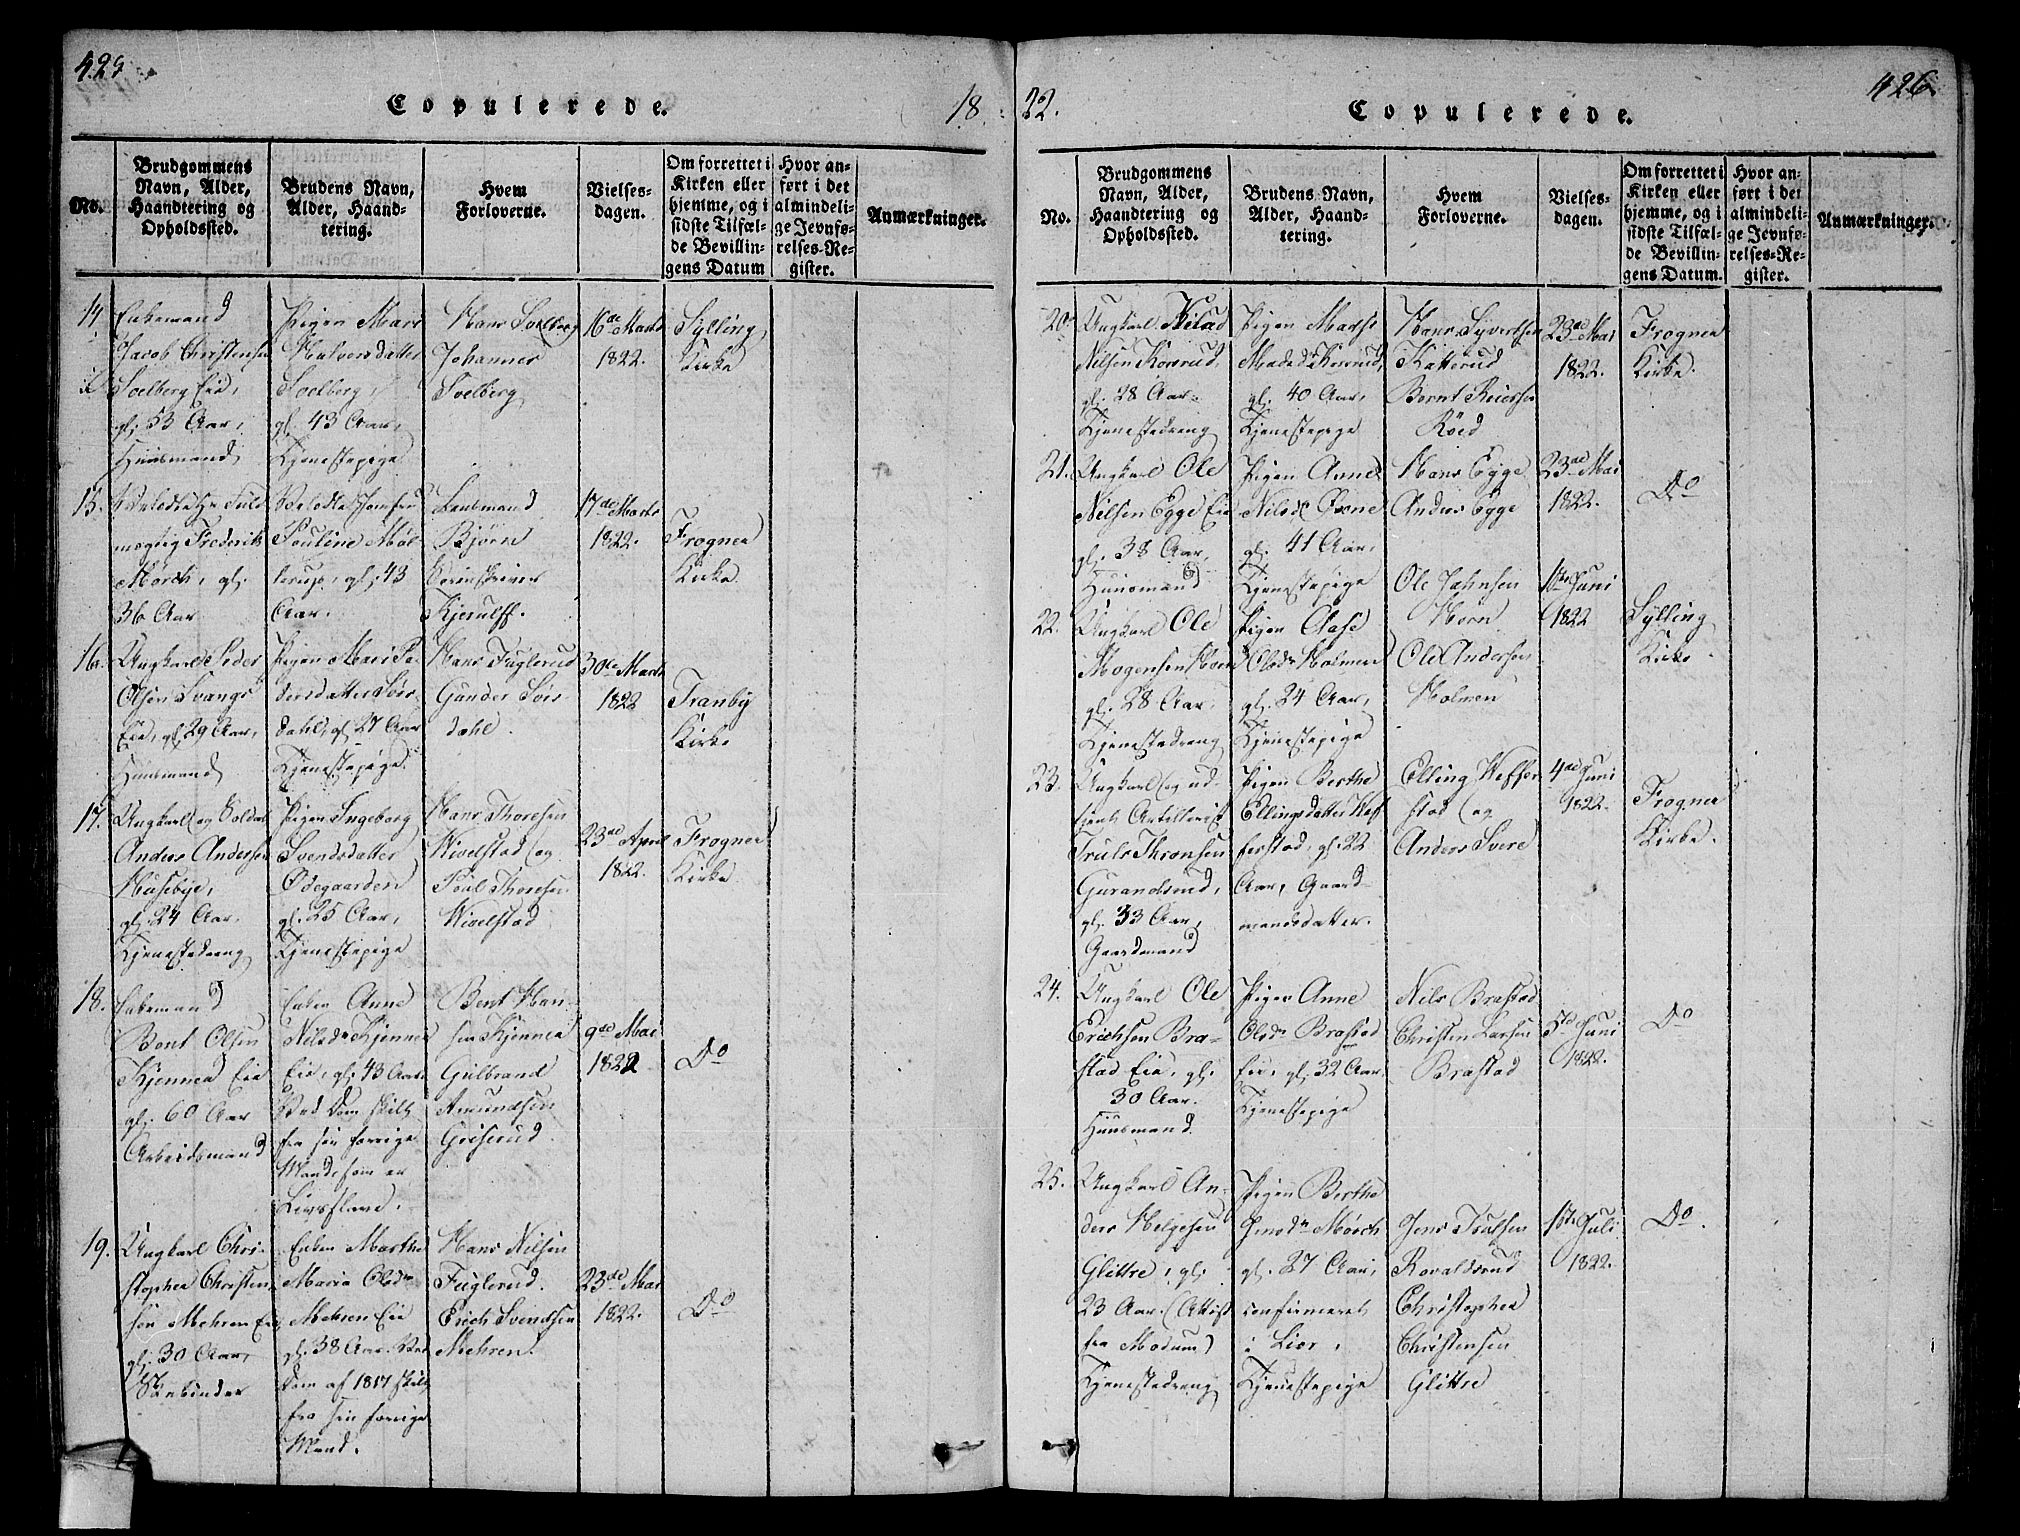 425
Copulerede.
18
No.
Brudgommens
Navn, Alder,
Haandtering og
Opholdssted.
Brudens Navn,
Alder, Haand-
tering.
Hvem
Forloverne.
Vielses-
dagen.
Om forrettet i
Kirken eller
hjemme, og i
sidste Tilfæl-
de Bevillin-
gens Datum
Hvor an-
ført i det
almindeli-
ge Jevnfø-
relses-Re-
gister.
Anmærkninger.
14.
Enkemand
Jacob Christensen
Solberg Eie,
gl. 53 Aar,
Huusmand
Pigen Mari
Halvorsdatter
Solberg,
gl. 43 Aar,
Tjenestepige
Hans Solberg
Johannes
Solberg
16de Marts
1822.
Sylling
Kirke
15.
Fuld
mægtig Frederik
Mørch, gl.
36 Aar
Jomfru
Pauline Møl-
lerup, gl. 43
Aar.
Lensmand
Bjørn
Sorinskriver
Kjerulff.
17de Marts
1822.
Frogner
Kirke
16.
Ungkarl Peder
Olsen Svangs
Eie, gl. 29 Aar,
Huusmand
Pigen Mari Pe-
dersdatter Sørs-
dahl, gl. 27 Aar
Tjenestepige
Hans Fuglerud
Gunder Sørs-
dahl
30te Marts
1822
Tranby
Kirke
17.
Ungkarl og Soldat
Anders Andersen
Huseby,
gl. 24 Aar.
Tjenestedreng
Pigen Ingeborg
Svendsdatter
Ødegaarden
gl. 25 Aar,
Tjenestepige
Hans Thoresen
Wivelstad og
Poul Thoresen
Wivelstad
23de April
1822.
Frogner
Kirke
18.
Enkemand
Bent Olsen
Kjenner Eie
gl. 60 Aar
Arbeidsmand
Enken Anne
Nilsdr Kjenner
Eie, gl. 43 Aar
Ved Dom skilt
fra sin forrige
Mand, som er
Livsslave.
Bent Han-
sen Kjenner
Gulbrand
Amundsen
Griserud.
9de Mai
1822
Do
19.
Ungkarl Chri-
stopher Christen-
sen Mehren Eie
gl. 30 Aar,
Enken Marthe
Maria Olsdr
Mehren Eie
gl. 38 Aar. Ved
Dom af 1817 skilt
fra sin forrige
Mand.
Hans Nilsen
Fuglerud.
Erich Svendsen
Mehren.
23de Mai
1822.
Do
22.
Copulerede.
426.
No.
Brudgommens
Navn, Alder,
Haandtering og
Opholdssted.
Brudens Navn,
Alder, Haand-
tering.
Hvem
Forloverne.
Vielses-
dagen.
Om forrettet i
Kirken eller
hjemme, og i
sidste Tilfæl-
de Bevillin-
gens Datum.
Hvor an-
ført i det
almindeli-
ge Jevnfø-
relses-Re-
gister.
Anmærkninger.
20.
Ungkarl
Nilsen Korsrud,
gl. 28 Aar.
Tjenestedreng
Pigen Marthe
Madsdr Korsrud,
gl. 40 Aar,
Tjenestepige
Hans Syvertsen
Katterud
Bernt Reiersen
Röed
23de Mai
1822.
Frogner
Kirke.
21.
Ungkarl Ole
Nilsen Egge Eie
gl. 38 Aar,
Huusmand
Pigen Anne
Nilsdr Oxne
gl. 41 Aar,
Tjenestepige
Hans Egge
Anders Egge
23de Mai
1822.
Do
22.
Ungkarl Ole
Mogensen Horn
gl. 28 Aar.
Tjenestedreng
Pigen Aase
Olsdr Holmen
gl. 24 Aar,
Tjenestepige
Ole Jahnsen
Horn
Ole Andersen
Holmen
1ste Juni
1822
Sylling
Kirke
23.
Ungkarl og ud-
tjent Artillerist
Truls Thronsen
Gurandsrud,
gl. 33 Aar,
Gaardmand
Pigen Berthe
Ellingsdatter Hef-
ferstad, gl. 22
Aar, Gaard-
mandsdatter.
Elling Heffer-
stad og
Anders Svere
4de Juni
1822.
Frogner
Kirke.
24.
Ungkarl Ole
Erichsen Bra-
stad Eie, gl.
30 Aar.
Huusmand.
Pigen Anne
Olsdr Brastad
Eie, gl. 32 Aar,
Tjenestepige
Nils Brastad
Christen Larsen
Brastad
5te Juni
1822.
Do
25.
Ungkarl An-
ders Helgesen
Glittre, gl.
23 Aar. (Attest
fra Modum)
Tjenestedreng
Pigen Berthe
Jensdr Mörch
gl. 27 Aar,
confirmeret
i Lier,
Tjenestepige
Jens Trulsen
Rovaldsrud
Christopher
Christensen
Glittre
1ste Juli
1822.
Do.